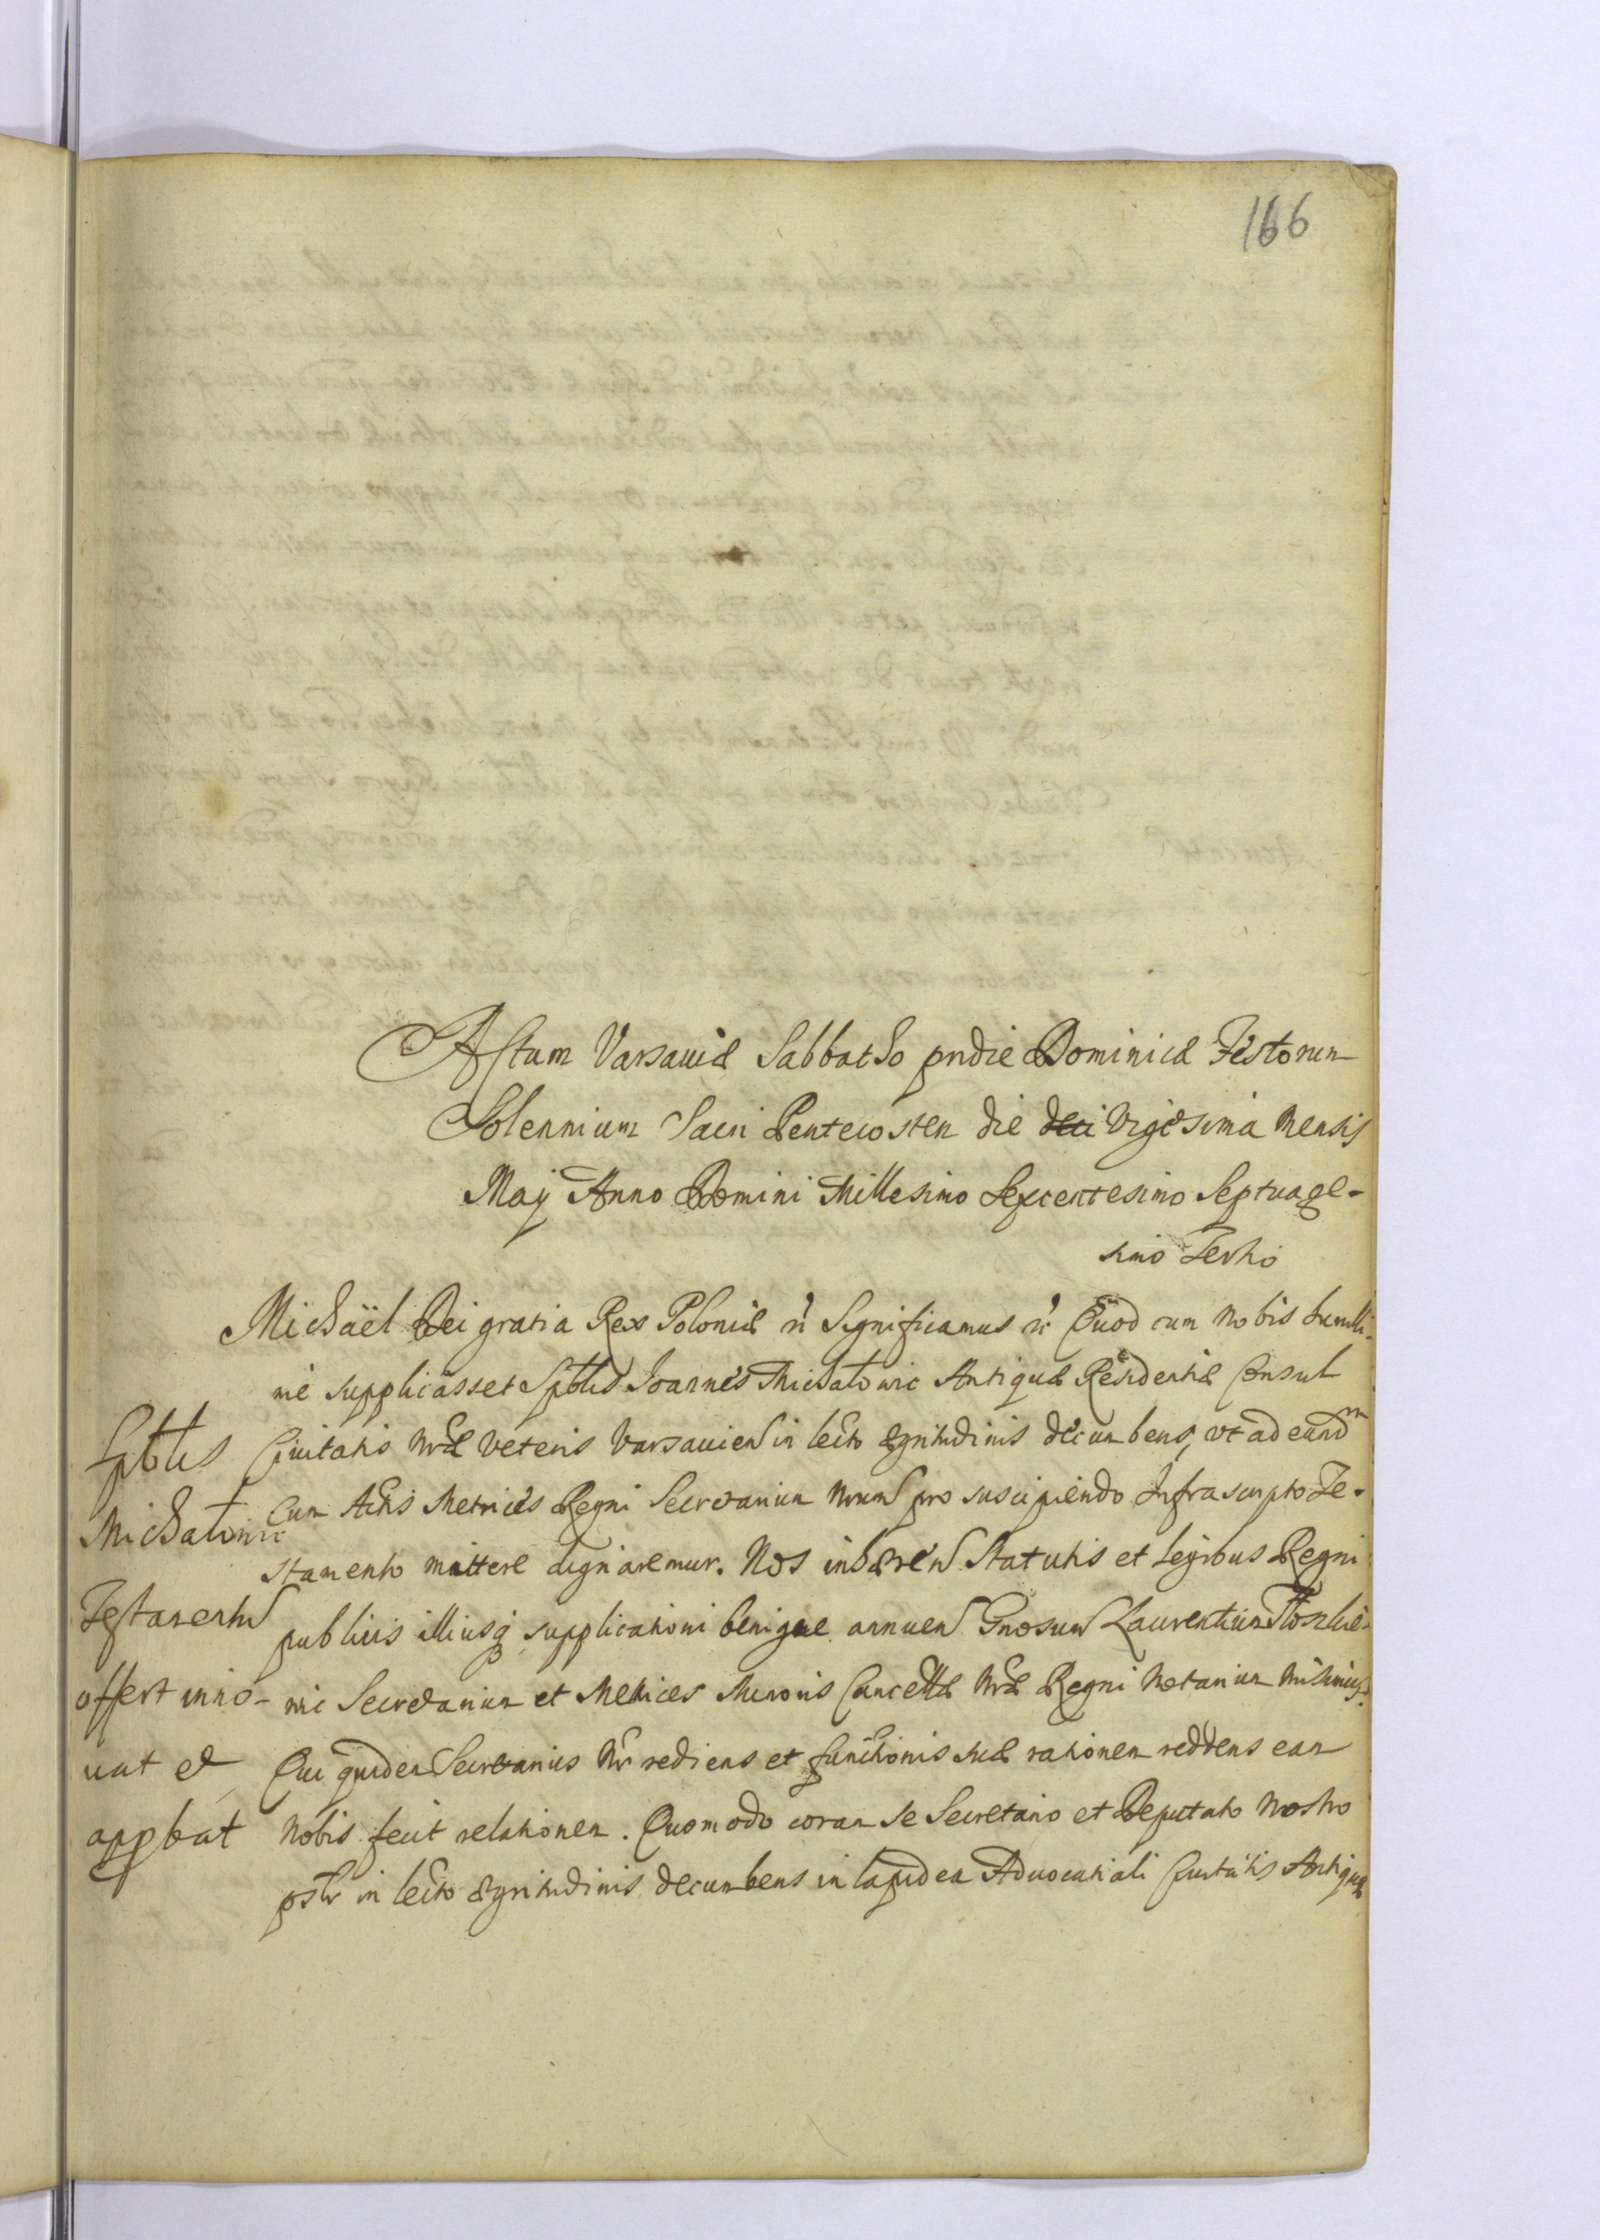 166
Actum Varsaviæ Sabbatho pridie Dominicæ Festorum
Solennium Sacri Pentecosten die deci Vigesima Mensis
Maij Anno Domini Millesimo Sexcentesimo Septuage-
simo Tertio
Michaël Dei gratia Rex Poloniæ Significamus Quod cum Nobis humilli-
me supplicasset Sptblis Joannes Michałowic Antiquæ Residentiæ Consul
Civitatis Nræ Veteris Varsavien in lecto ægritudinis decumbens, vt ad eund
Cum Actis Metrices Regni Secretarium Nrum pro suscipiendo Infrascripto Te-
stamento mittere dignaremur. Nos inhæren Statutis et legibus Regni
publicis illiusq supplicationi benigne annuen Gnosum Laurentium
wic Secretarium et Metrices Minoris Cancellæ Nræ Regni Notarium Misimus.
Qui quidem Secretarius Nr rediens et functionis suæ rationem reddens eam
Nobis fecit relationem. Quomodo coram Se Secretario et Deputato Nostro
pstr in lecto ægritudinis decumbens in lapidea Advocatiali Civitatis Antiquæ
Sptblis
Michałowic
Testamentu
offert inno-
uat et
appbat